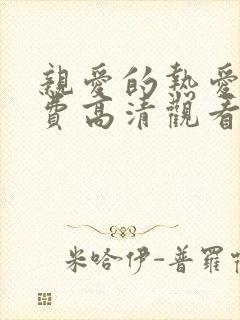 親愛的熱愛
費高清觀看
米哈伊-普羅